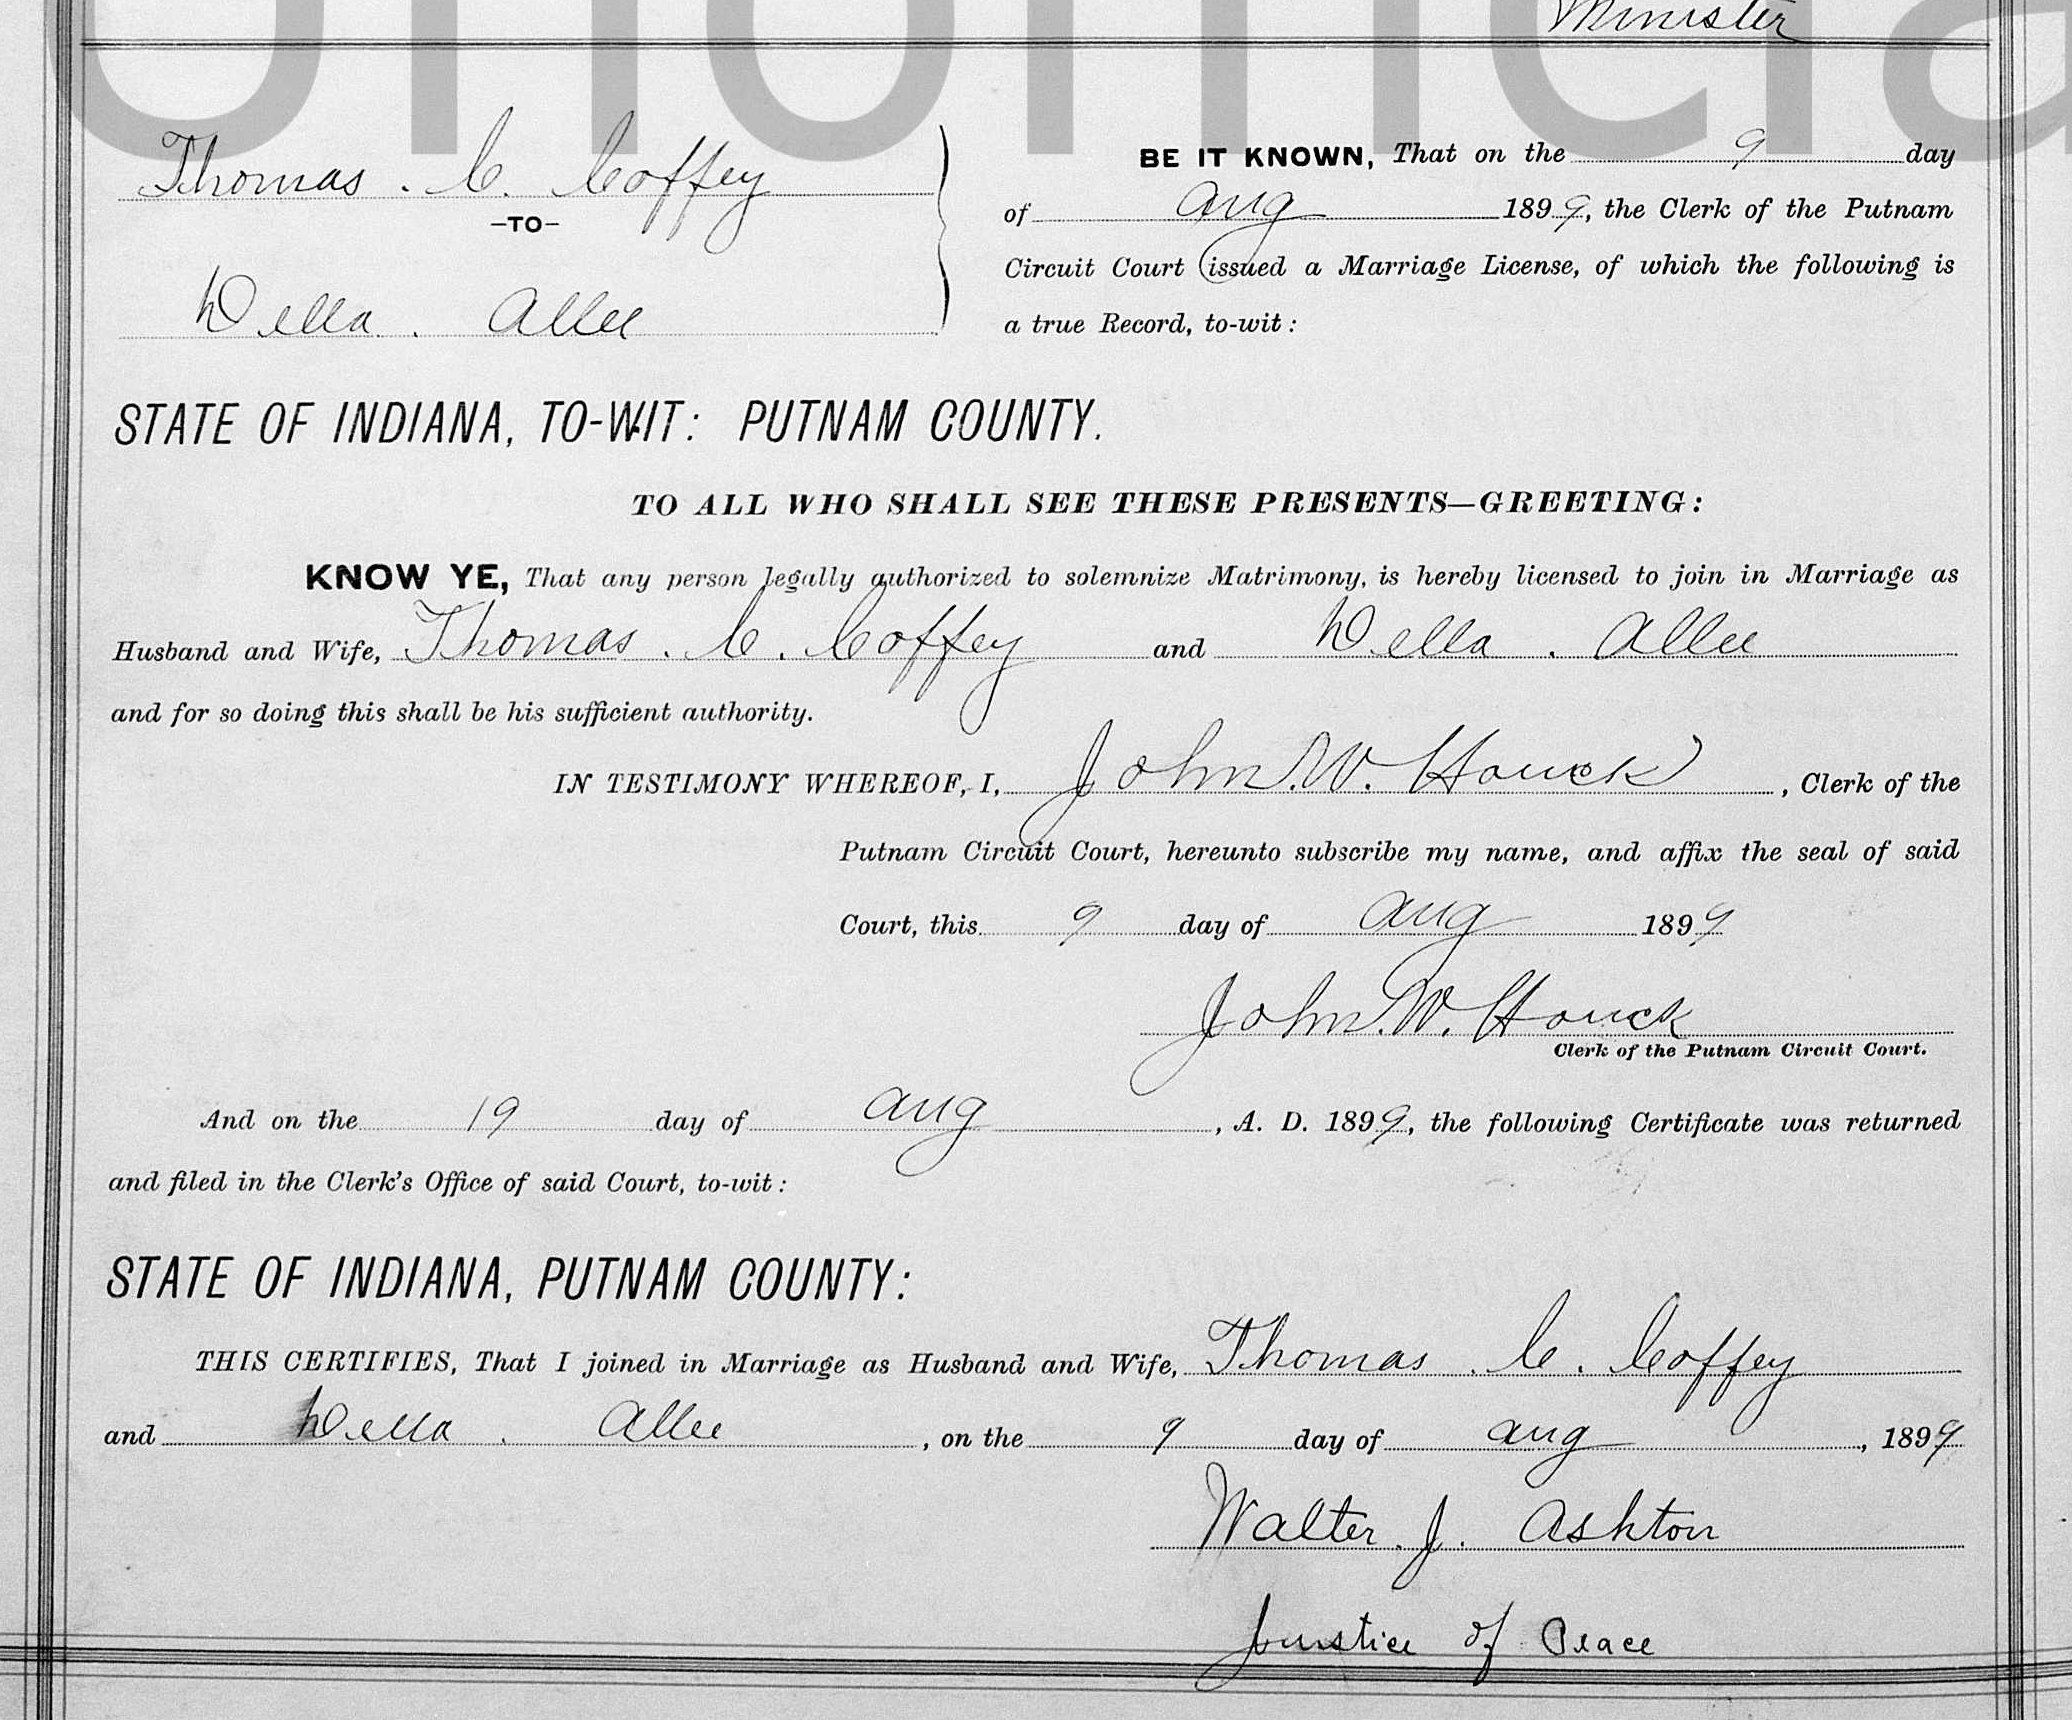 Minister
Thomas . C. Coffey
–TO–
Della . Allee
BE IT KNOWN, That on the 9 day
of Aug 1899, the Clerk of the Putnam
Circuit Court issued a Marriage License, of which the following is
a true Record, to-wit:
STATE OF INDIANA, TO-WIT: PUTNAM COUNTY.
TO ALL WHO SHALL SEE THESE PRESENTS—GREETING:
KNOW YE, That any person legally authorized to solemnize Matrimony, is hereby licensed to join in Marriage as
Husband and Wife, Thomas . C. Coffey and Della . Allee
and for so doing this shall be his sufficient authority.
IN TESTIMONY WHEREOF, I, John. W. Houck, Clerk of the
Putnam Circuit Court, hereunto subscribe my name, and affix the seal of said
Court, this 9 day of Aug 1899
John. W. Houck
Clerk of the Putnam Circuit Court.
And on the 19 day of Aug, A. D. 1899, the following Certificate was returned
and filed in the Clerk's Office of said Court, to-wit:
STATE OF INDIANA, PUTNAM COUNTY:
THIS CERTIFIES, That I joined in Marriage as Husband and Wife, Thomas . C. Coffey
and Della . Allee, on the 9 day of Aug, 1899
Walter. J. Ashton
Justice of Peace